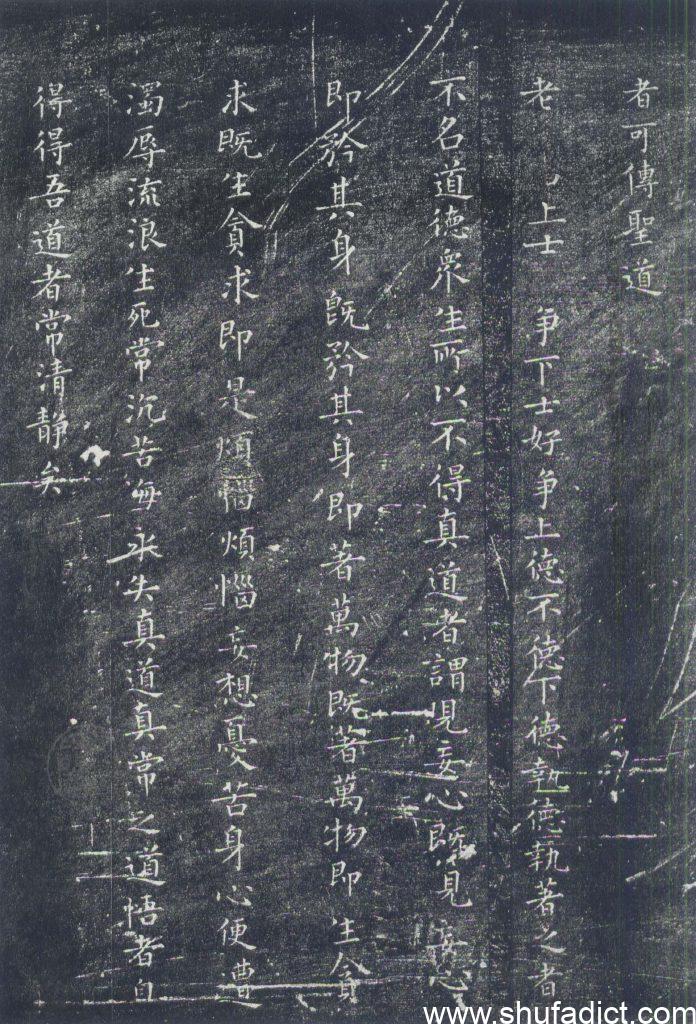 者可傳聖道
老上士争下士好争上德不德下德執德執著之者
不名道德衆生所以不得真道者謂見妄心既見妄心
即矜其身既矜其身即著萬物既著萬物即生貪
求既生貪求即是煩惱煩惱妄想憂苦身心便遭
濁辱流浪生死常沉苦海永失真道真常之道悟者自
得得吾道者常清靜矣
www.shufadict.com